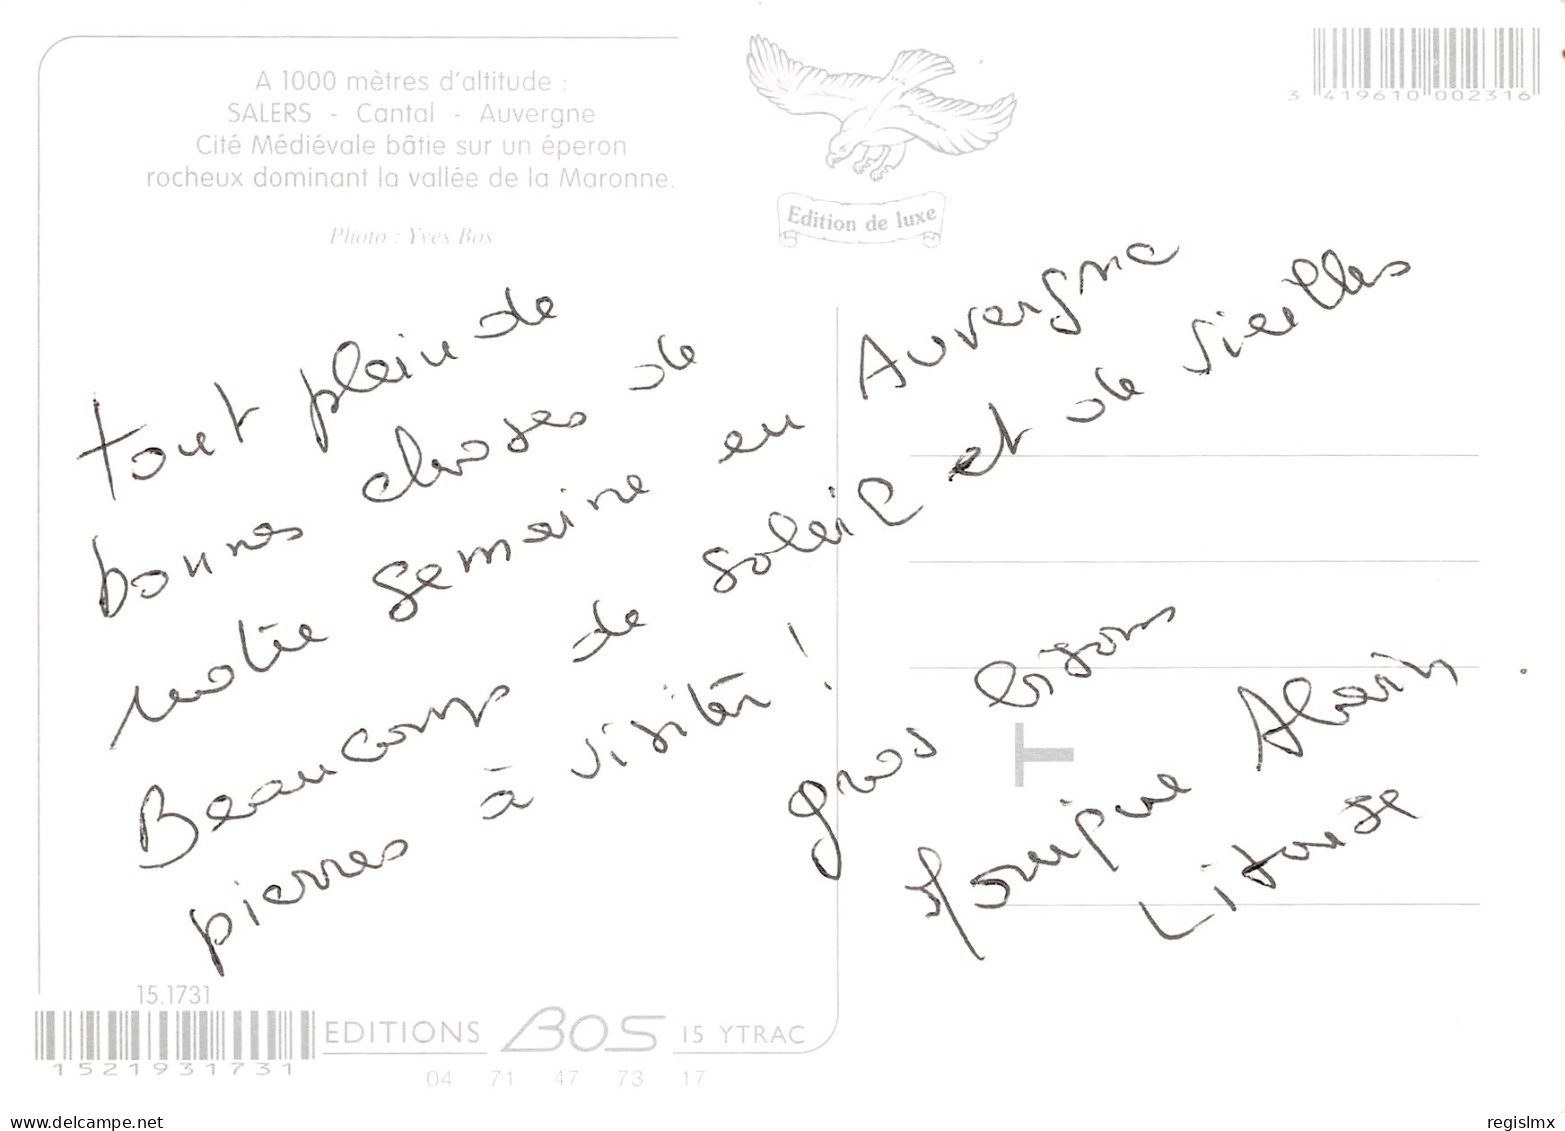 A 1000 mètres d'altitude :
SALERS - Cantal - Auvergne
Cité Médiévale bâtie sur un éperon
rocheux dominant la vallée de la Maronne.
Photo : Yves Bos
Edition de luxe
3 419610 002316
tout plein de
bonnes choses de
notre semaine en Auvergne
Beaucoup de soleil et de vieilles
pierres à visiter !
gros bisous
Monique Alain
T
15.1731
1521931731
EDITIONS BOS 15 YTRAC
04 71 47 73 17
www.delcampe.net
regislmx